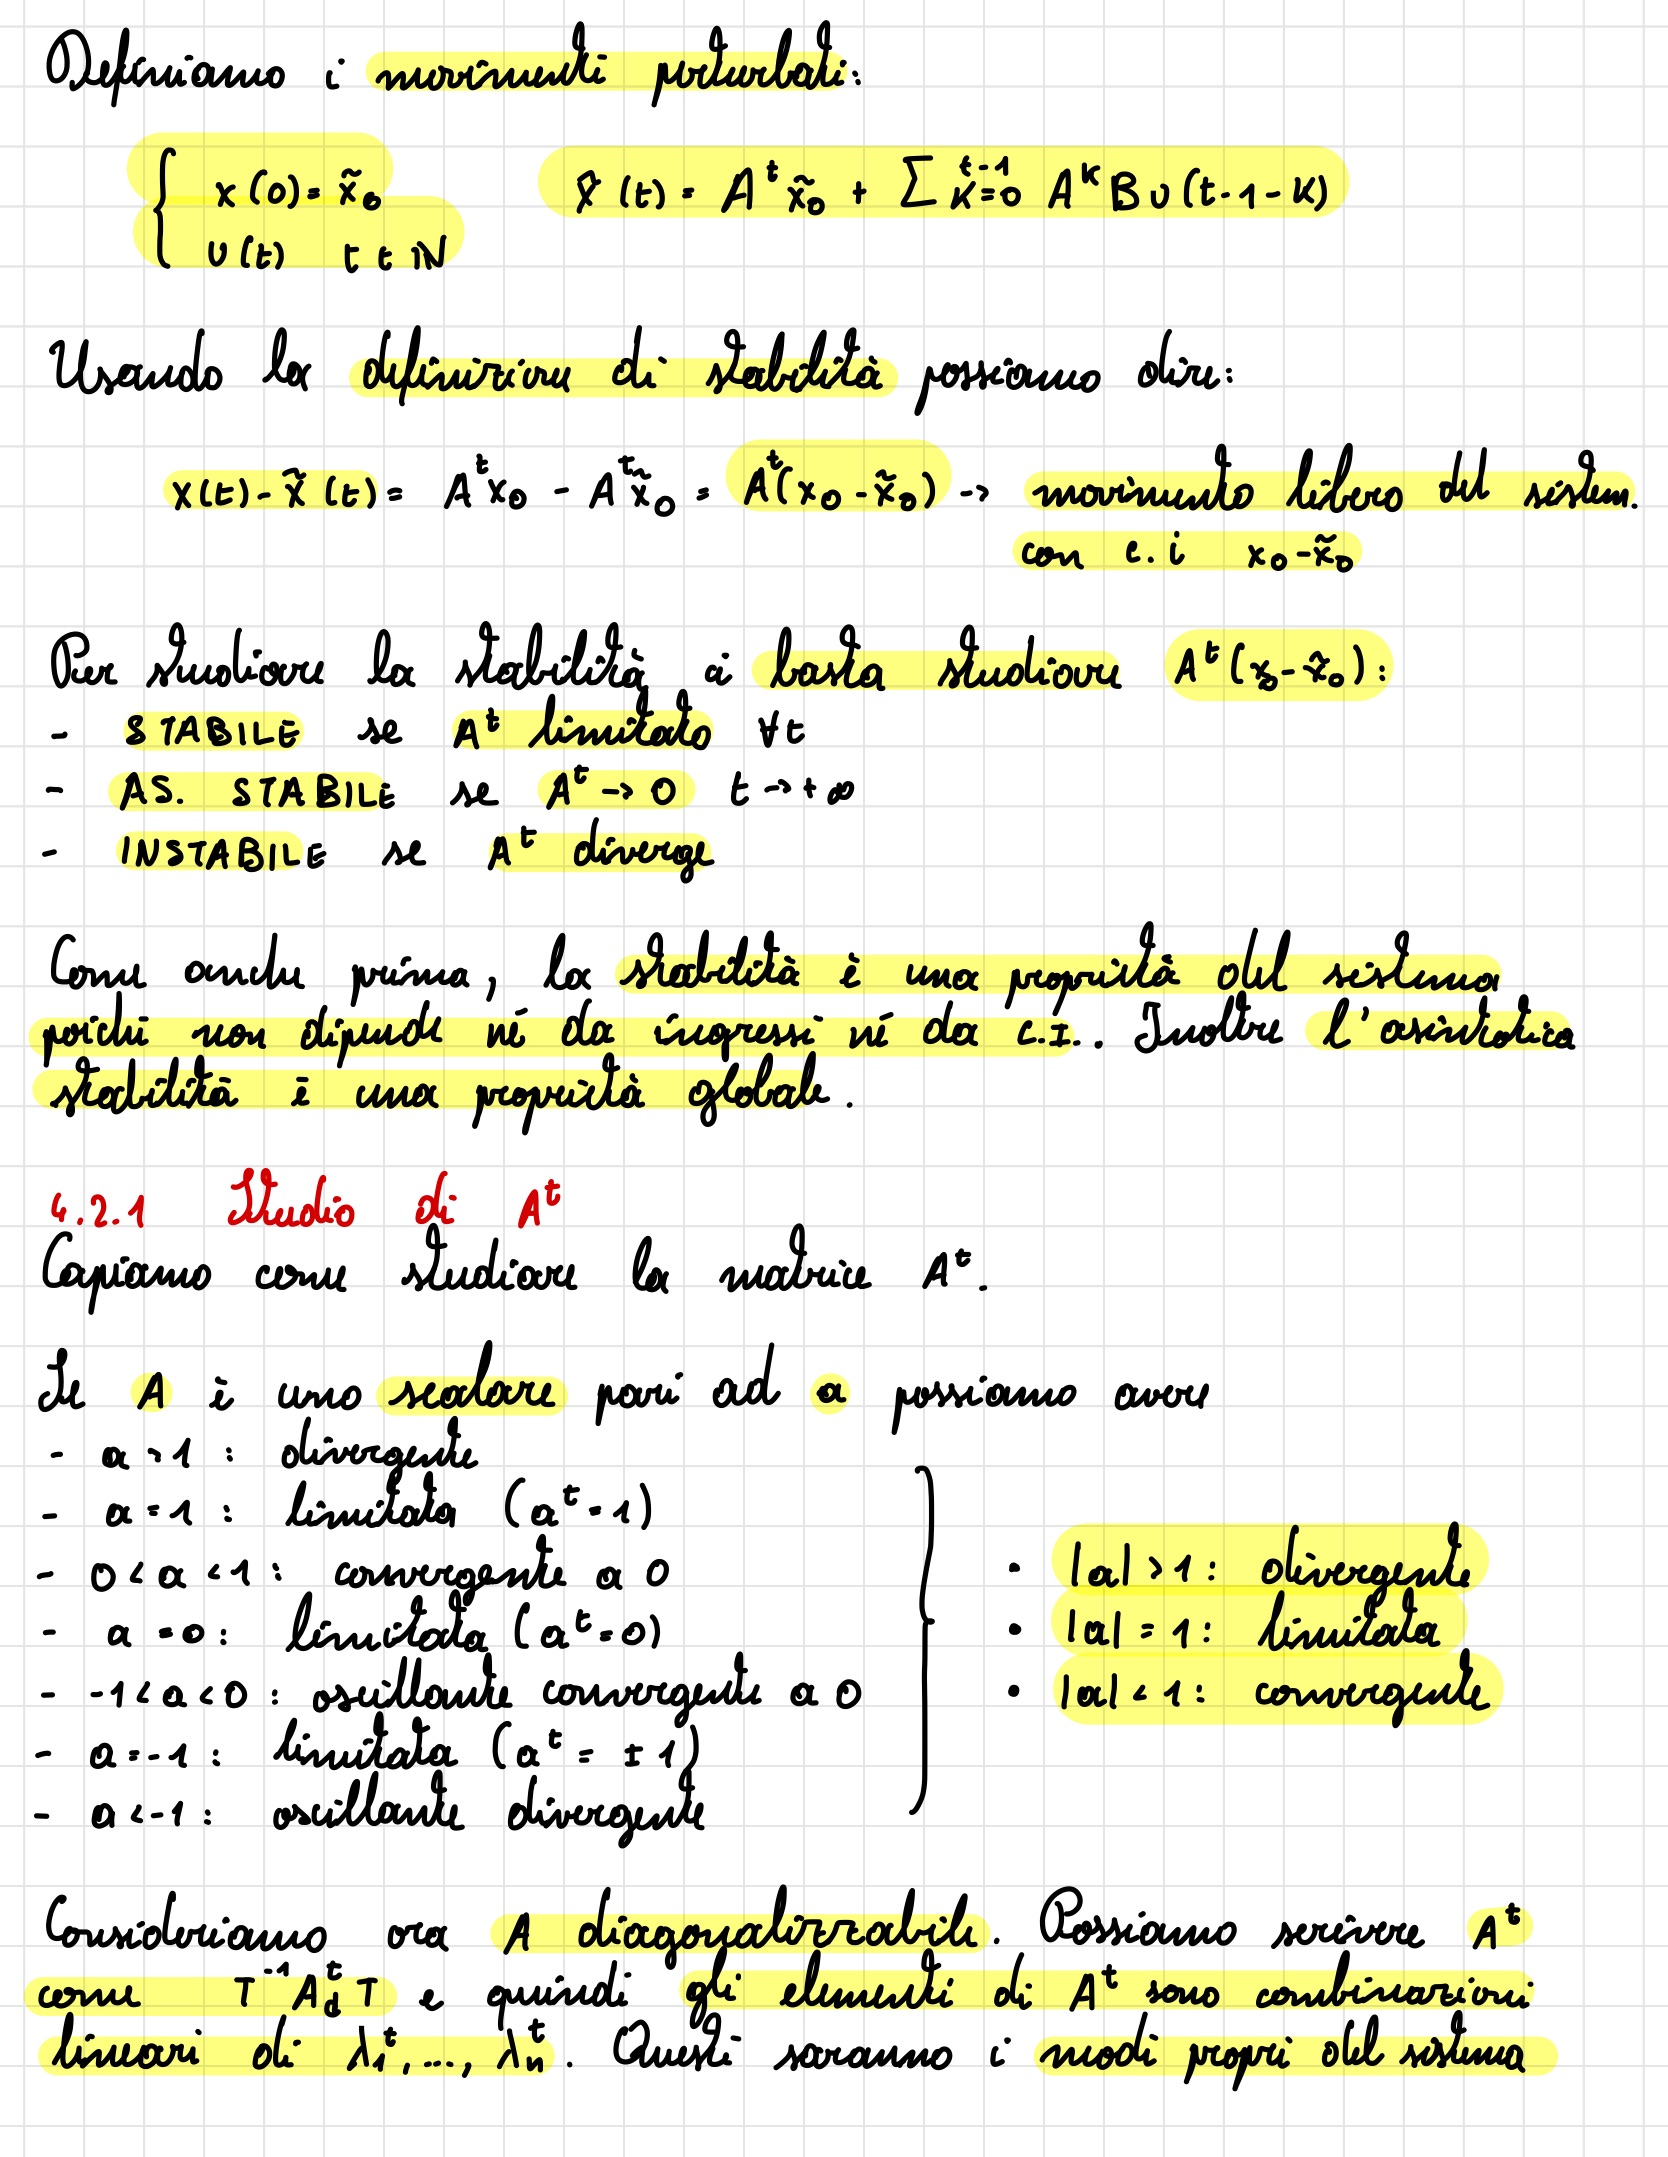 Definiamo i movimenti perturbati:
{ x(0) = x̃₀    x̃(t) = Aᵗx̃₀ + ∑ₖ₌₀ᵗ⁻¹ AᵏBu(t-1-k)
u(t) t ∈ ℕ
Usando la definizione di stabilità possiamo dire:
x(t) - x̃(t) = Aᵗx₀ - Aᵗx̃₀ = Aᵗ(x₀ - x̃₀) -> movimento libero del sistem.
con c.i x₀ - x̃₀
Per studiare la stabilità ci basta studiare Aᵗ(x₀ - x̃₀):
- STABILE se Aᵗ limitato ∀t
- AS. STABILE se Aᵗ -> 0 t -> +∞
- INSTABILE se Aᵗ diverge
Come anche prima, la stabilità è una proprietà del sistema
poiché non dipende né da ingressi né da C.I.. Inoltre l'asintotica
stabilità è una proprietà globale.
4.2.1 Studio di Aᵗ
Capiamo come studiare la matrice Aᵗ.
Se A è uno scalare pari ad a possiamo avere
- a > 1 : divergente
- a = 1 : limitata (aᵗ = 1)
- 0 < a < 1 : convergente a 0
- a = 0 : limitata (aᵗ = 0)
- -1 < a < 0 : oscillante convergente a 0
- a = -1 : limitata (aᵗ = ±1)
- a < -1 : oscillante divergente
• |a| > 1 : divergente
• |a| = 1 : limitata
• |a| < 1 : convergente
Consideriamo ora A diagonalizzabile. Possiamo scrivere Aᵗ
come T⁻¹A_dᵗT e quindi gli elementi di Aᵗ sono combinazioni
lineari di λ₁ᵗ, ..., λₙᵗ. Questi saranno i modi propri del sistema